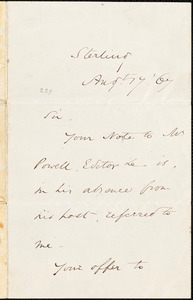 Sterling
Augst 17 '67
Sir.
Your Note to Mr
Powell, Editor &c is,
in his absence from
his post, referred to
me.
Your offer to